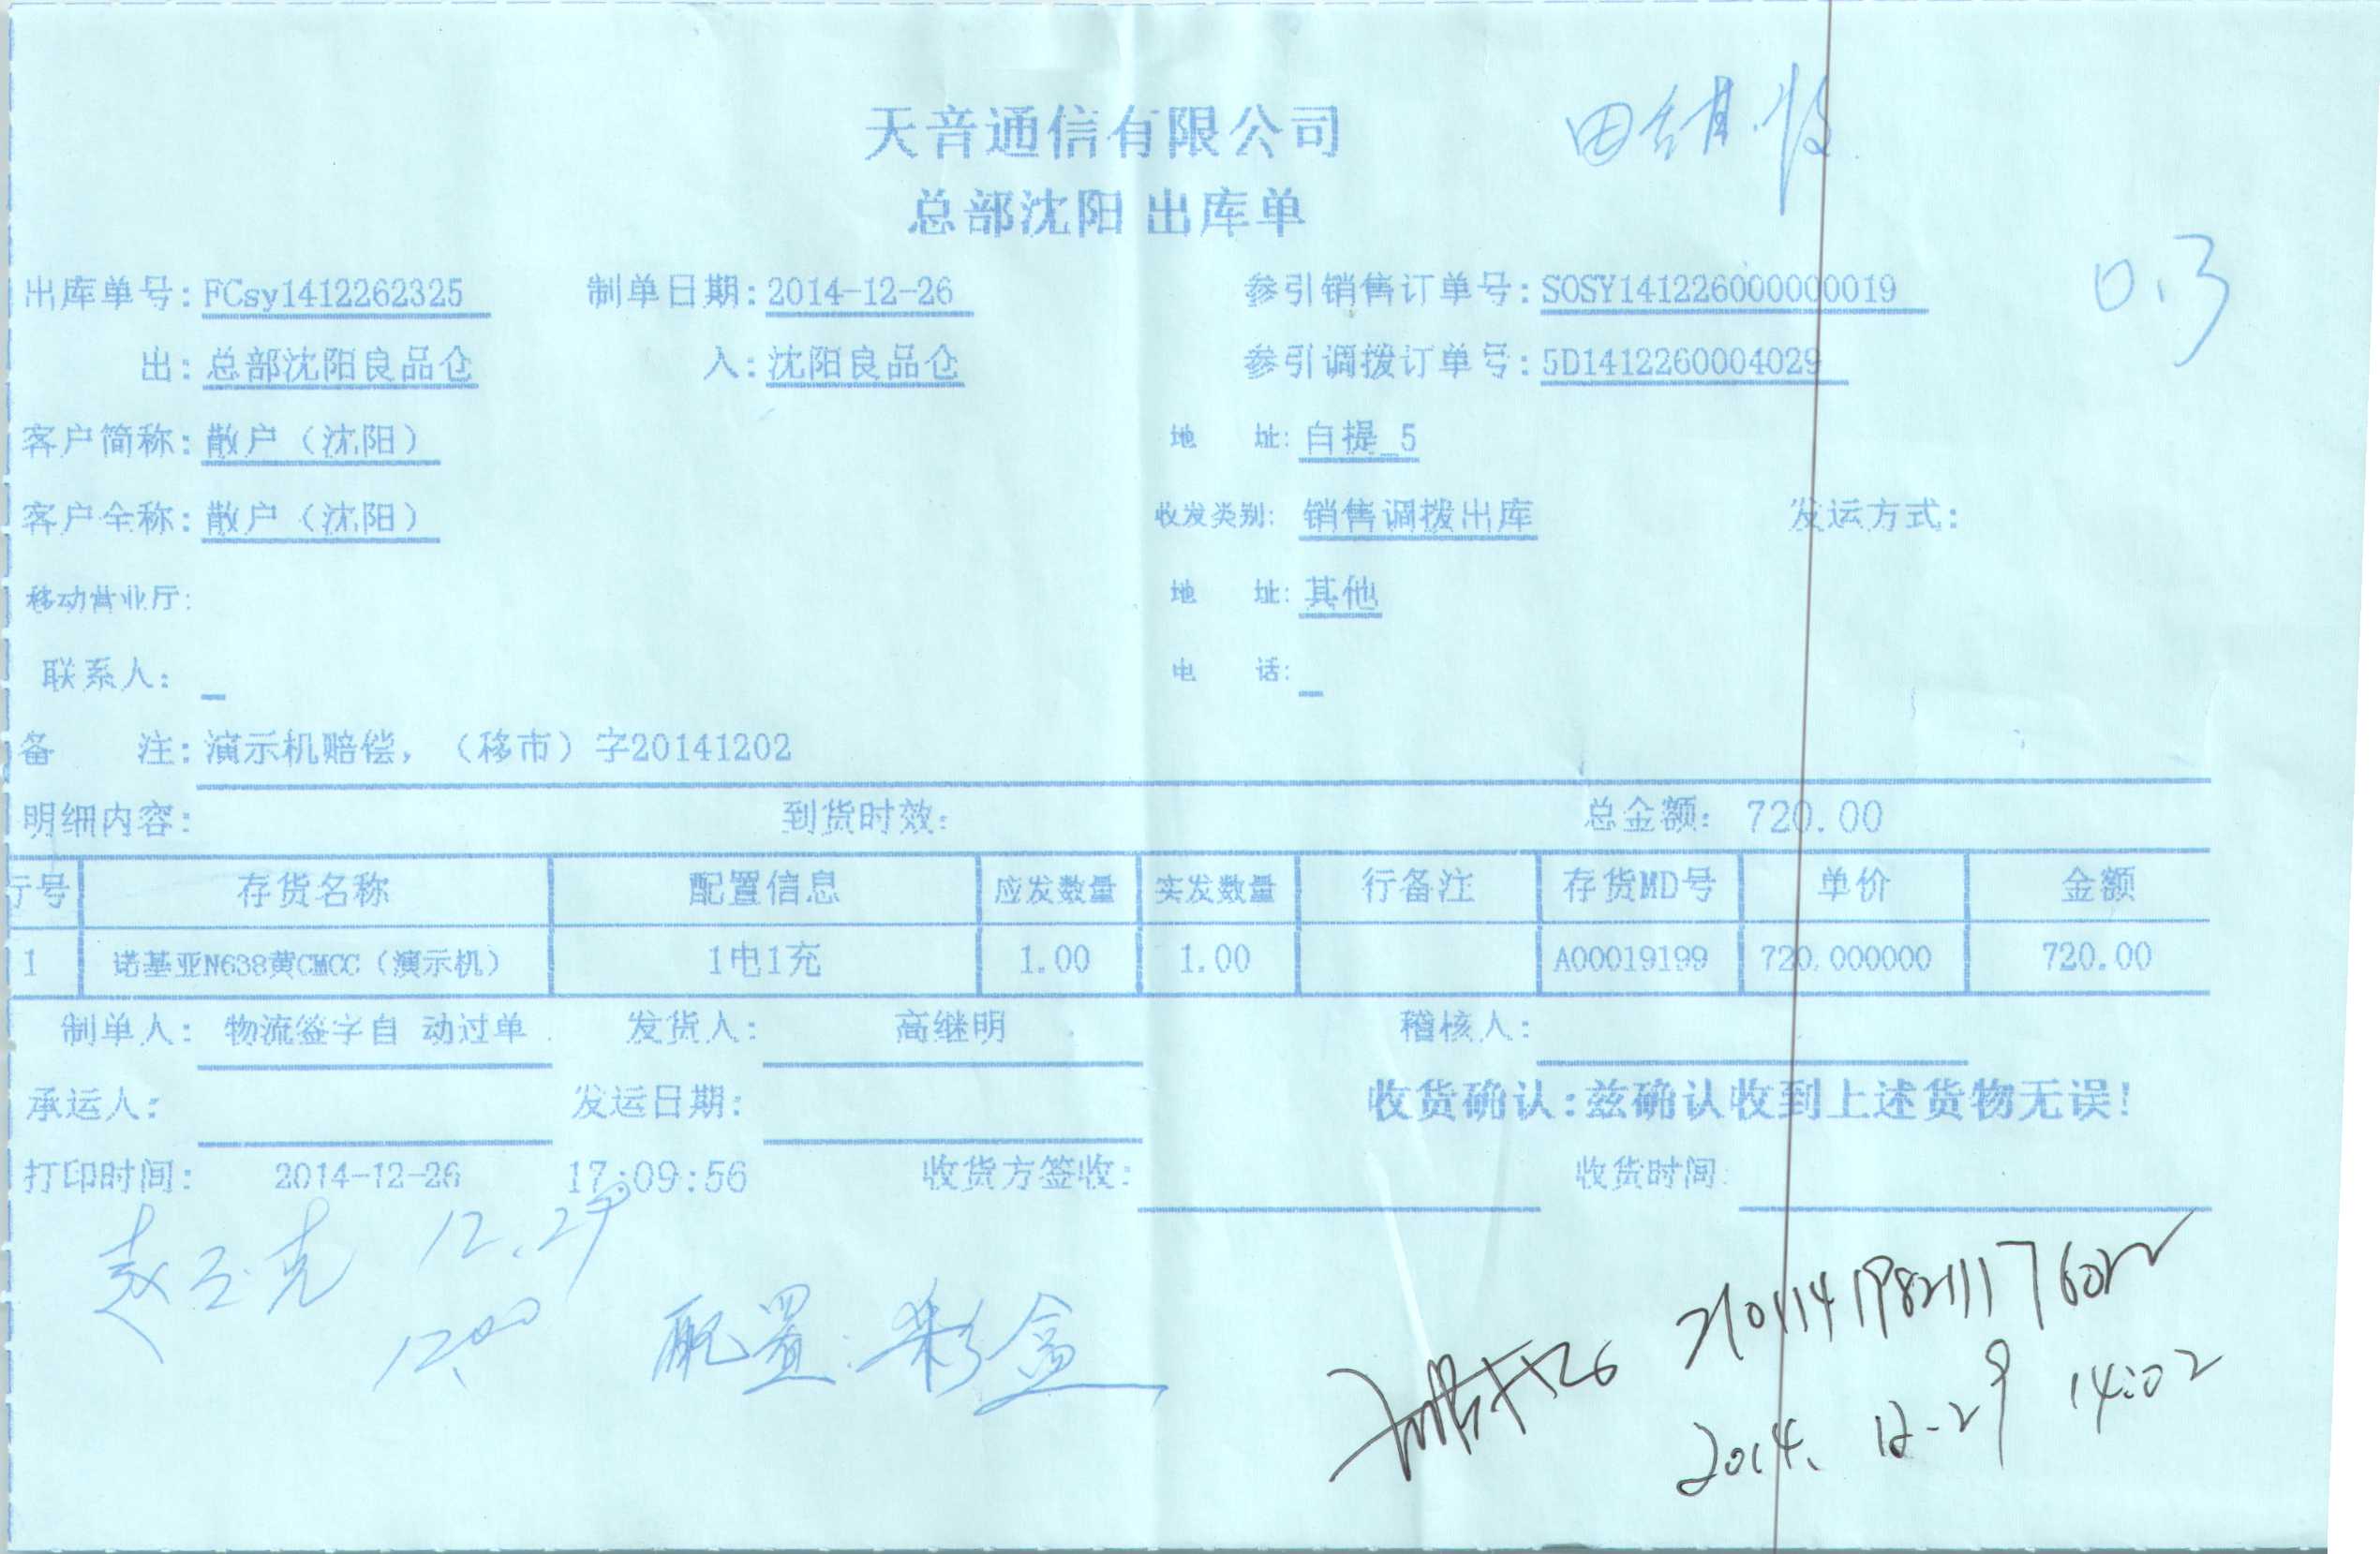 天音通信有限公司
总部沈阳 出库单
0.3
出库单号: FCsy1412262325 制单日期: 2014-12-26 参引销售订单号: SOSY141226000000019
出: 总部沈阳良品仓 入: 沈阳良品仓 参引调拨订单号: 5D1412260004029
客户简称: 散户（沈阳） 地 址: 自提_5
客户全称: 散户（沈阳） 收发类别: 销售调拨出库 发运方式:
移动营业厅: 地 址: 其他
联系人: 电 话:
备 注: 演示机赔偿，（移市）字20141202
明细内容: 到货时效: 总金额: 720.00
行号 存货名称 配置信息 应发数量 实发数量 行备注 存货MD号 单价 金额
1 诺基亚N638黄CMCC（演示机） 1电1充 1.00 1.00 A00019199 720.000000 720.00
制单人: 物流签字自 动过单 发货人: 高继明 稽核人:
承运人: 发运日期: 收货确认:兹确认收到上述货物无误!
打印时间: 2014-12-26 17:09:56 收货方签收: 收货时间:
12.29
配置:彩盒
2014.12-29 14:02